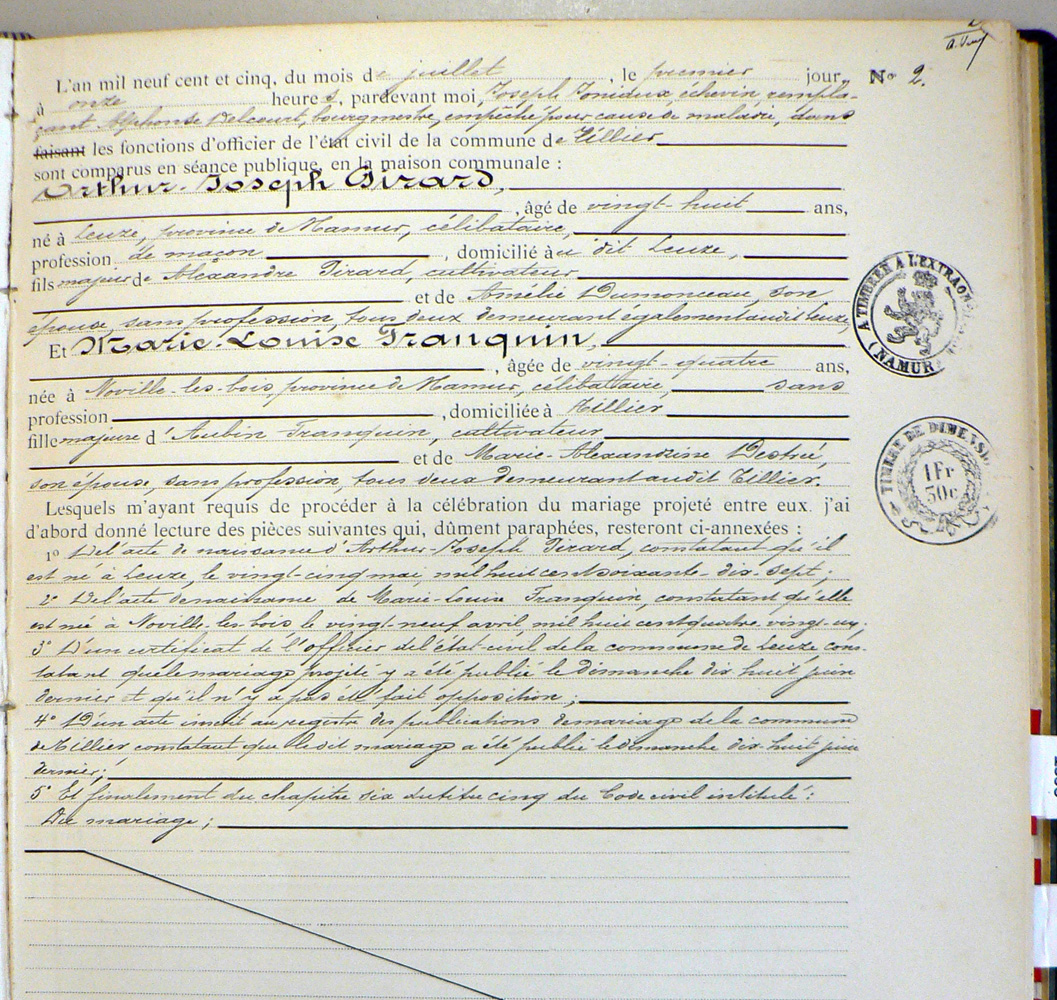 L'an mil neuf cent et cinq, du mois de juillet, le premier jour, N° 2.
à onze heures, pardevant moi, Joseph Toniaux, échevin, rempla-
çant Alphonse Delcourt, bourgmestre, empêché pour cause de maladie, dans
faisant les fonctions d'officier de l'état civil de la commune de Tillier
sont comparus en séance publique, en la maison communale :
Arthur-Joseph Pirard,
, âgé de vingt-huit ans,
né à Leuze, province de Namur, célibataire,
profession de maçon, domicilié au dit Leuze,
fils majeur de Alexandre Pirard, cultivateur
et de Amélie Dumonceau, son
épouse, sans profession, tous deux demeurant également audit Leuze,
Et Marie-Louise Franquin,
, âgée de vingt-quatre ans,
née à Noville-les-bois, province de Namur, célibataire, sans
profession, domiciliée à Tillier
fille majeure d'Aubin Franquin, cultivateur
et de Marie-Alexandrine Destrée,
son épouse, sans profession, tous deux demeurant audit Tillier.
Lesquels m'ayant requis de procéder à la célébration du mariage projeté entre eux, j'ai
d'abord donné lecture des pièces suivantes qui, dûment paraphées, resteront ci-annexées :
1° De l'acte de naissance d'Arthur-Joseph Pirard, constatant qu'il
est né à Leuze, le vingt-cinq mai, mil huit cent soixante-dix-sept;
2° De l'acte de naissance de Marie-Louise Franquin, constatant qu'elle
est né à Noville-les-bois le vingt-neuf avril, mil huit cent quatre-vingt-un;
3° D'un certificat de l'officier de l'état-civil de la commune de Leuze cons-
tatant que le mariage projeté y a été publié le dimanche dix huit juin
dernier et qu'il n'y a pas été fait opposition;
4° D'un acte inscrit au registre des publications de mariage de la commune
de Tillier constatant que le dit mariage a été publié le dimanche dix-huit juin
dernier;
5° Et finalement du chapitre six du titre cinq du Code civil intitulé :
Du mariage;
A TIMBRER A L'EXTRAORDINAIRE
(NAMUR)
TIMBRE DE DIMENSION
1 Fr
50c